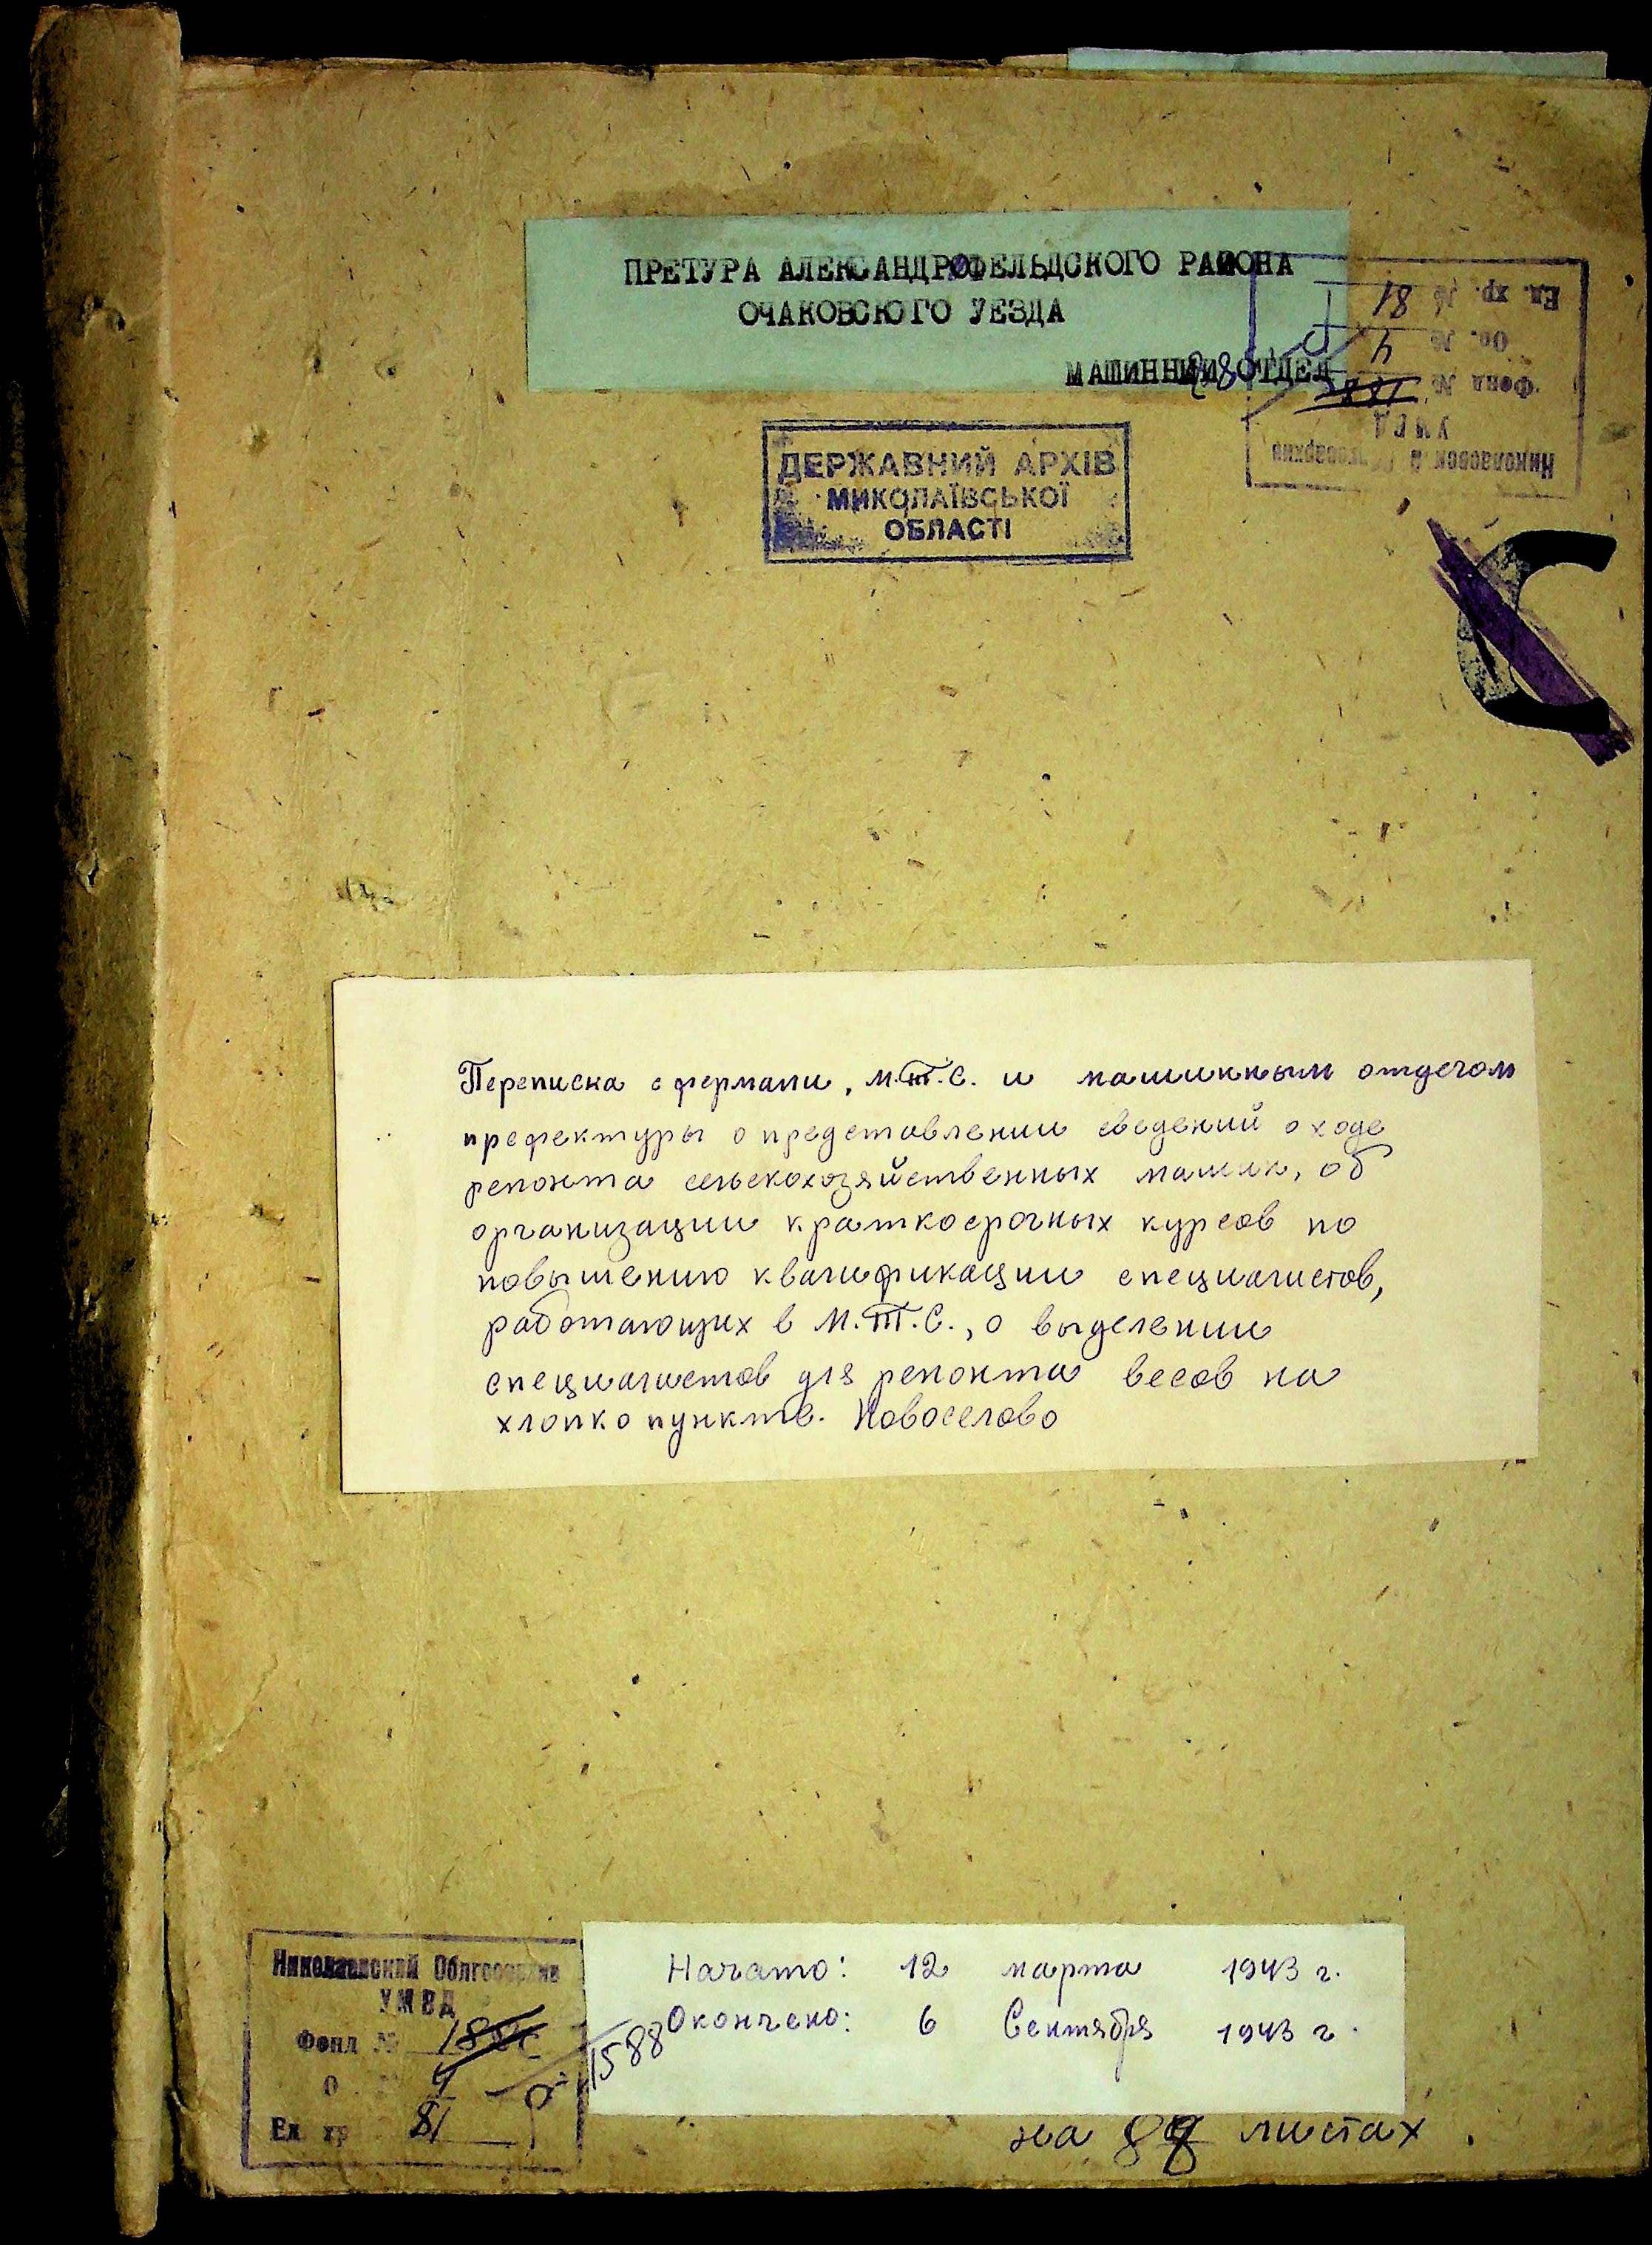 ПРЕТУРА АЛЕКСАНДРОФЕЛЬДСКОГО РАЙОНА
ОЧАКОВСКОГО УЕЗДА
МАШИННЫЙ ОТДЕЛ
Николаевский Облгосархив
УМВД
Фонд №
Оп. № 4
Ед. хр. № 81
ДЕРЖАВНИЙ АРХІВ
МИКОЛАЇВСЬКОЇ
ОБЛАСТІ
Переписка с фермами, М.Т.С. и машинным отделом
префектуры о представлении сведений о ходе
ремонта сельскохозяйственных машин, об
организации краткосрочных курсов по
повышению квалификации специалистов,
работающих в М.Т.С., о выделении
специалистов для ремонта весов на
хлопко пункте. Новоселово
Начато: 12 марта 1943 г.
Окончено: 6 Сентября 1943 г.
на листах
Николаевский Облгосархив
УМВД
Фонд № 1588
О 4
Ед. хр 81